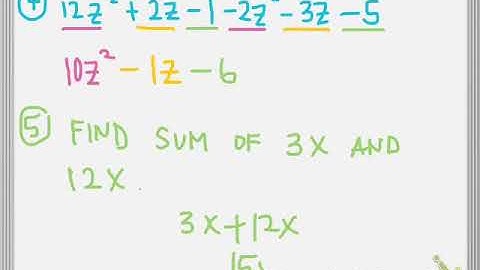 ④ 12z² + 2z - 1 - 2z² - 3z - 5
10z² - 1z - 6
⑤ FIND SUM OF 3X AND
12X.
3X+12X
15